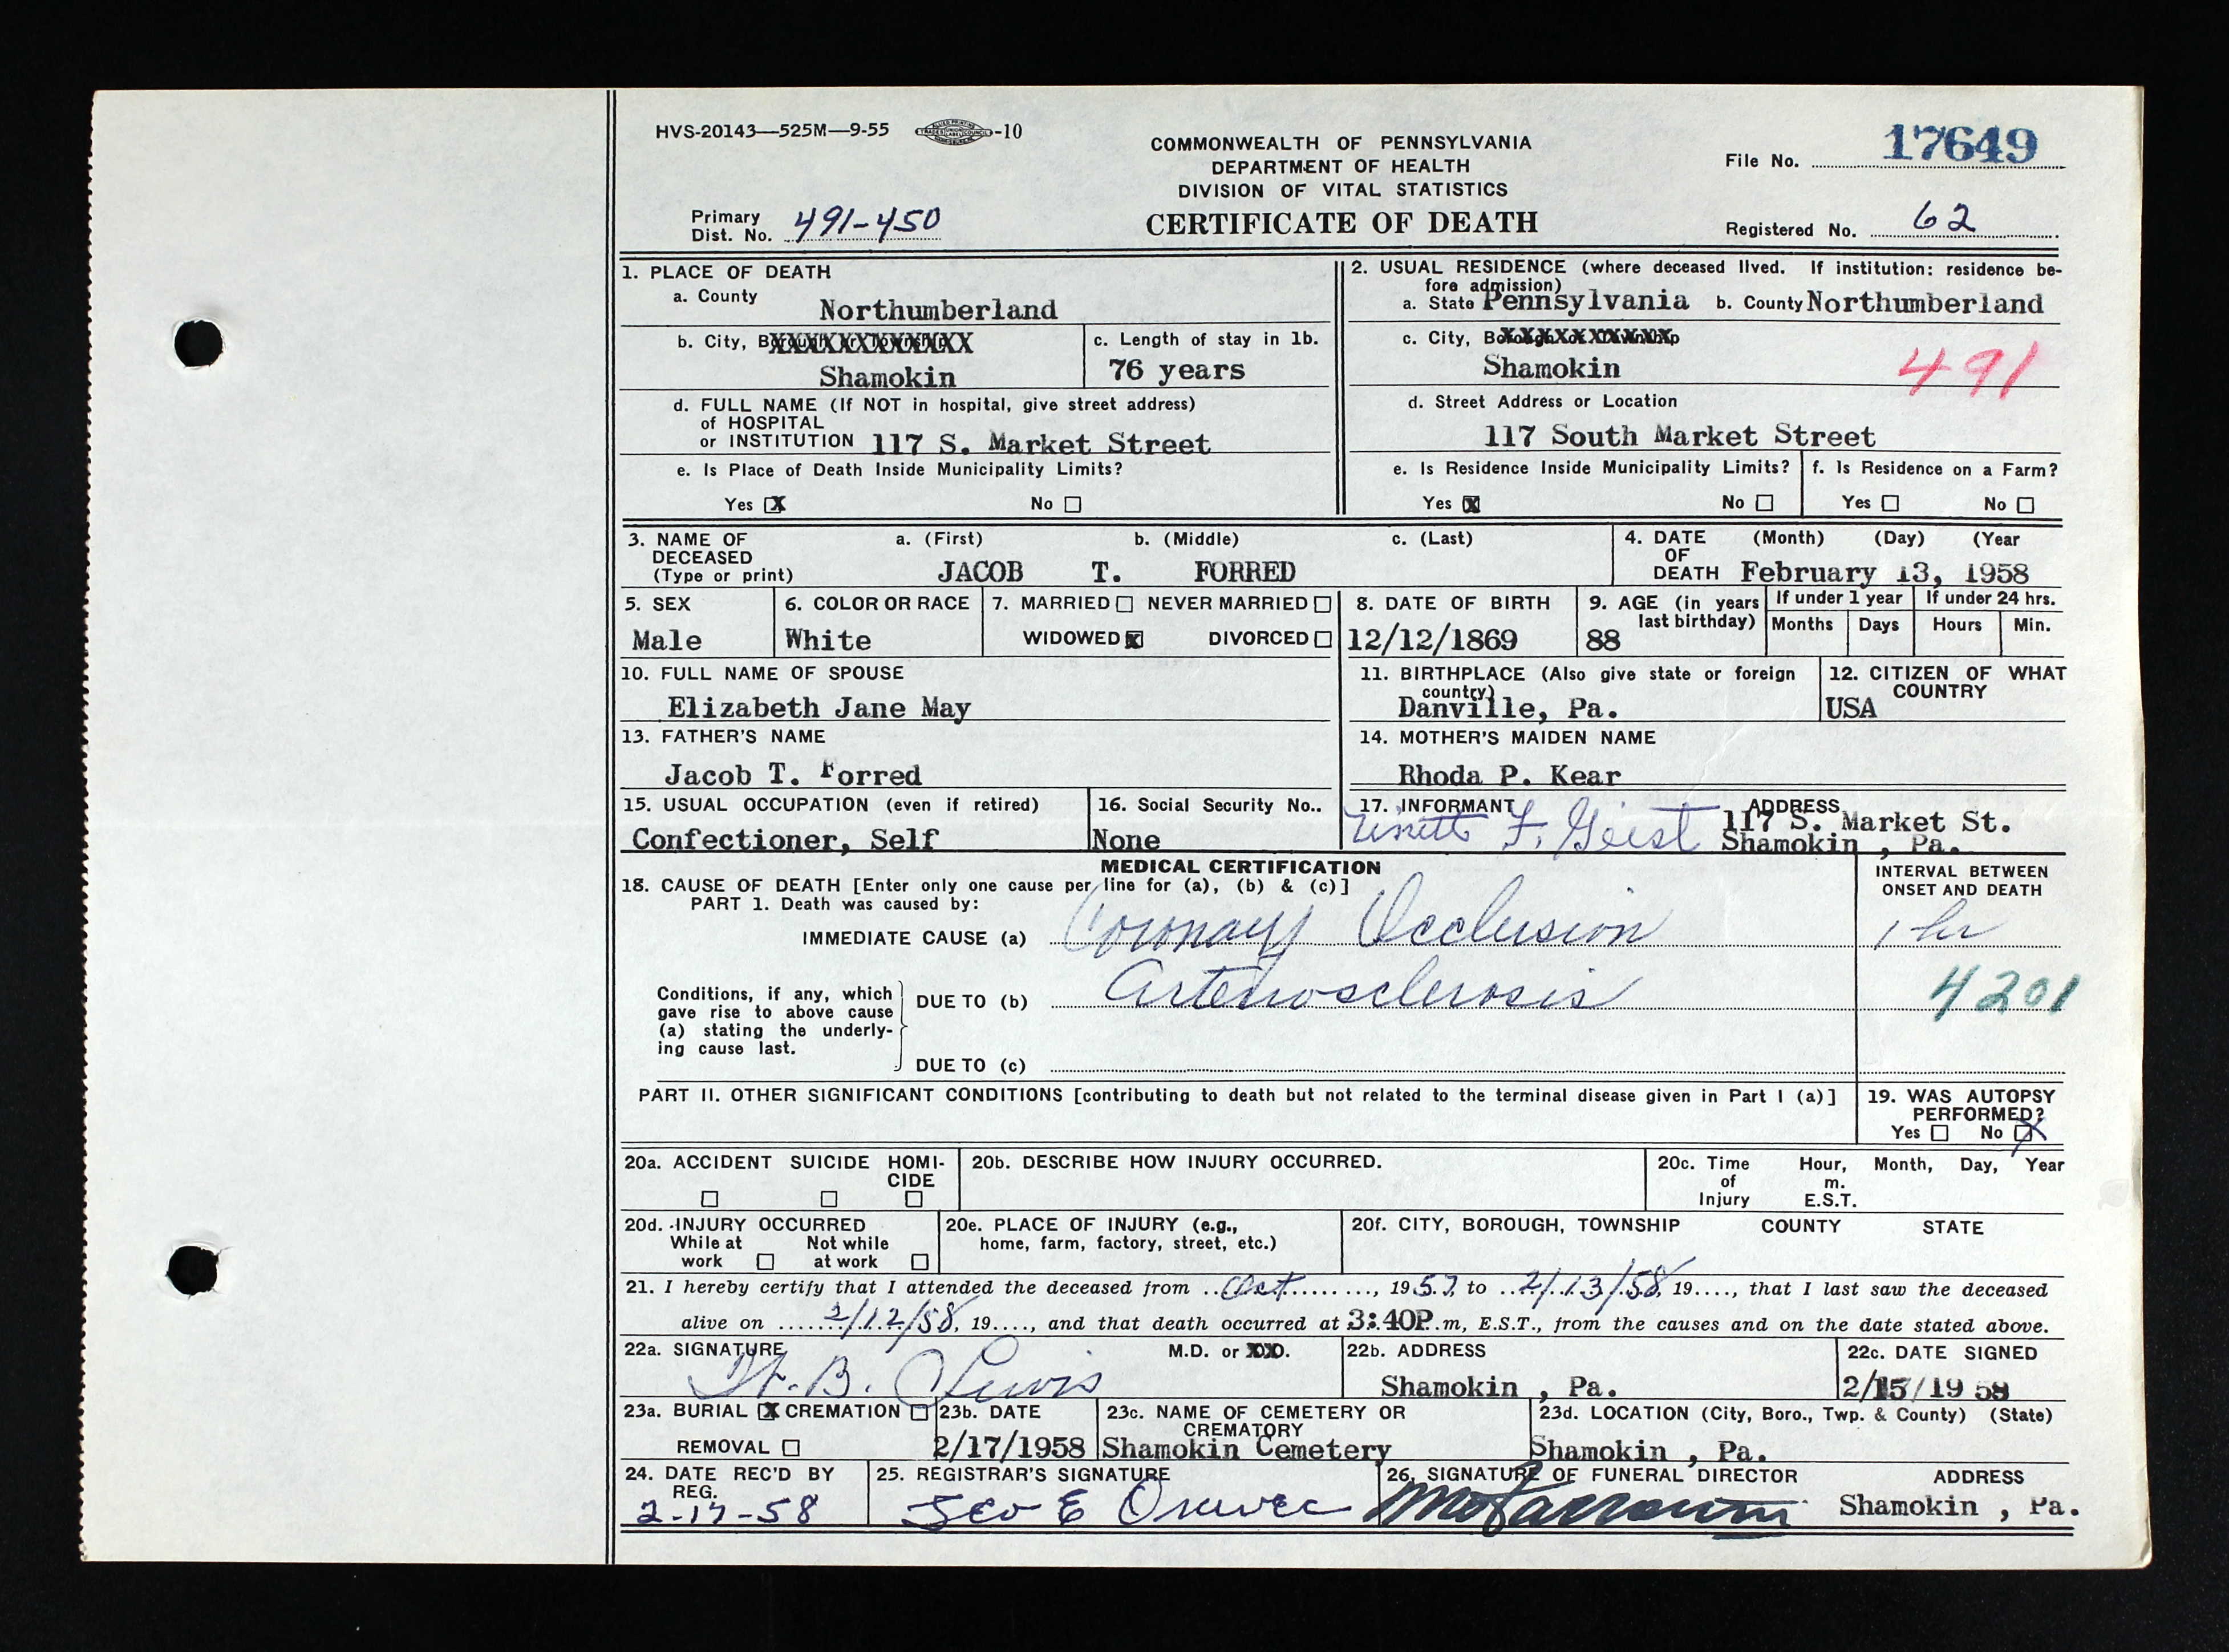 HVS-20143—525M—9-55 -10
COMMONWEALTH OF PENNSYLVANIA
DEPARTMENT OF HEALTH
DIVISION OF VITAL STATISTICS
CERTIFICATE OF DEATH
File No. 17649
Primary
Dist. No. 491-450
Registered No. 62
1. PLACE OF DEATH
a. County
Northumberland
b. City, Borough or Township
Shamokin
c. Length of stay in 1b.
76 years
d. FULL NAME (If NOT in hospital, give street address)
of HOSPITAL
or INSTITUTION 117 S. Market Street
e. Is Place of Death Inside Municipality Limits?
Yes X No
2. USUAL RESIDENCE (where deceased lived. If institution: residence be-
fore admission)
a. State Pennsylvania b. County Northumberland
c. City, Borough or Township
Shamokin
491
d. Street Address or Location
117 South Market Street
e. Is Residence Inside Municipality Limits?
Yes X No
f. Is Residence on a Farm?
Yes No
3. NAME OF
DECEASED
(Type or print)
a. (First) b. (Middle) c. (Last)
JACOB T. FORRED
4. DATE (Month) (Day) (Year
OF
DEATH February 13, 1958
5. SEX
Male
6. COLOR OR RACE
White
7. MARRIED NEVER MARRIED
WIDOWED X DIVORCED
8. DATE OF BIRTH
12/12/1869
9. AGE (in years
last birthday)
88
If under 1 year
Months Days
If under 24 hrs.
Hours Min.
10. FULL NAME OF SPOUSE
Elizabeth Jane May
11. BIRTHPLACE (Also give state or foreign
country)
Danville, Pa.
12. CITIZEN OF WHAT
COUNTRY
USA
13. FATHER'S NAME
Jacob T. Forred
14. MOTHER'S MAIDEN NAME
Rhoda P. Kear
15. USUAL OCCUPATION (even if retired)
Confectioner, Self
16. Social Security No..
None
17. INFORMANT
F. Geist
ADDRESS
117 S. Market St.
Shamokin , Pa.
MEDICAL CERTIFICATION
18. CAUSE OF DEATH [Enter only one cause per line for (a), (b) & (c)]
PART 1. Death was caused by:
IMMEDIATE CAUSE (a) Coronary Occlusion
INTERVAL BETWEEN
ONSET AND DEATH
1 hr
Conditions, if any, which
gave rise to above cause
(a) stating the underly-
ing cause last.
DUE TO (b) Arteriosclerosis
4201
DUE TO (c)
PART II. OTHER SIGNIFICANT CONDITIONS [contributing to death but not related to the terminal disease given in Part I (a)]
19. WAS AUTOPSY
PERFORMED?
Yes No X
20a. ACCIDENT SUICIDE HOMI-
CIDE
20b. DESCRIBE HOW INJURY OCCURRED.
20c. Time Hour, Month, Day, Year
of m.
Injury E.S.T.
20d. INJURY OCCURRED
While at Not while
work at work
20e. PLACE OF INJURY (e.g.,
home, farm, factory, street, etc.)
20f. CITY, BOROUGH, TOWNSHIP COUNTY STATE
21. I hereby certify that I attended the deceased from Oct, 1957, to 2/13/58, 19...., that I last saw the deceased
alive on 2/12/58, 19...., and that death occurred at 3:40P.m, E.S.T., from the causes and on the date stated above.
22a. SIGNATURE M.D. or XXO.
B. Lewis
22b. ADDRESS
Shamokin , Pa.
22c. DATE SIGNED
2/15/19 58
23a. BURIAL X CREMATION
REMOVAL
23b. DATE
2/17/1958
23c. NAME OF CEMETERY OR
CREMATORY
Shamokin Cemetery
23d. LOCATION (City, Boro., Twp. & County) (State)
Shamokin , Pa.
24. DATE REC'D BY
REG.
2-17-58
25. REGISTRAR'S SIGNATURE
26. SIGNATURE OF FUNERAL DIRECTOR
ADDRESS
Shamokin , Pa.